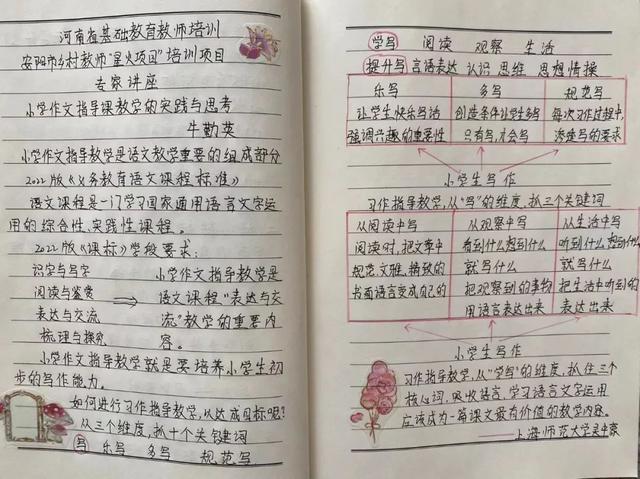 河南省基础教育教师培训
安阳市乡村教师“星火项目”培训项目
专家讲座
小学作文指导课教学的实践与思考
牛勤英
小学作文指导教学是语文教学重要的组成部分
2022版《义务教育语文课程标准》
语文课程是一门学习国家通用语言文字运
用的综合性、实践性课程。
2022版《课标》学段要求:
识字与写字
阅读与鉴赏
表达与交流
梳理与探究
小学作文指导教学是
语文课程“表达与交
流”教学的重要内
容。
小学作文指导教学就是要培养小学生初
步的写作能力。
如何进行习作指导教学,以达成目标呢?
从三个维度,抓十个关键词
写 乐写 多写 规范写
学写 阅读 观察 生活
提升写 言语表达 认识 思维 思想情操
乐写 多写 规范写
让学生快乐写话 创造条件让学生多写 每次习作过程中,
强调兴趣的重要性 只有写,才会写 渗透写的要求
小学生写作
习作指导教学,从“写”的维度,抓三个关键词
从阅读中写 从观察中写 从生活中写
阅读时,把文章中 看到什么想到什么 听到什么想什么
规范、文雅、精致的 就写什么 就写什么
书面语言变成自己的 把观察到的事物 把生活中听到的
用语言表达出来 表达出来
小学生写作
习作指导教学,从“学写”的维度,抓住三个
核心词,吸收语言,学习语言文字运用
应该成为一篇课文最有价值的教学内容。
——上海师范大学吴忠豪